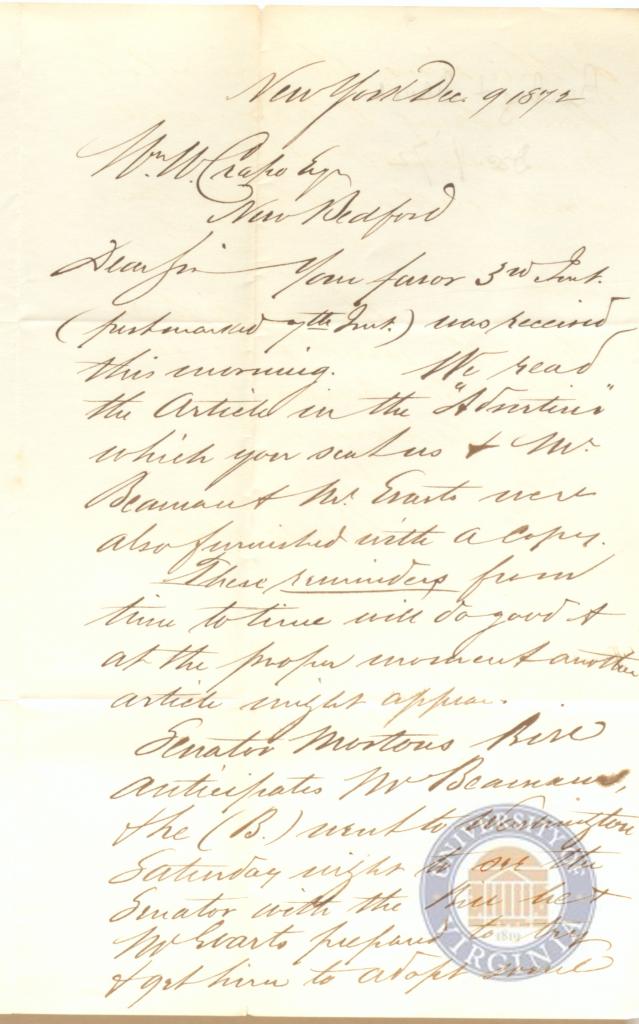 New York Dec. 9 1872
Wm. W. Crapo Esqr
New Bedford
Dear Sir Your favor 3rd Inst.
(postmarked 7th Inst.) was received
this morning. We read
the Article in the "Advertiser"
which you sent us & Mr.
Beaman & Mr. Evarts were
also furnished with a copy.
These reminders from
time to time will do good &
at the proper moment another
article might appear.
Senator Mortons Bill
anticipates Mr Beamans,
& he (B.) went to Washington
Saturday night to see the
Senator with the
Mr Evarts prepared to try
& get him to adopt some
UNIVERSITY OF VIRGINIA
1819